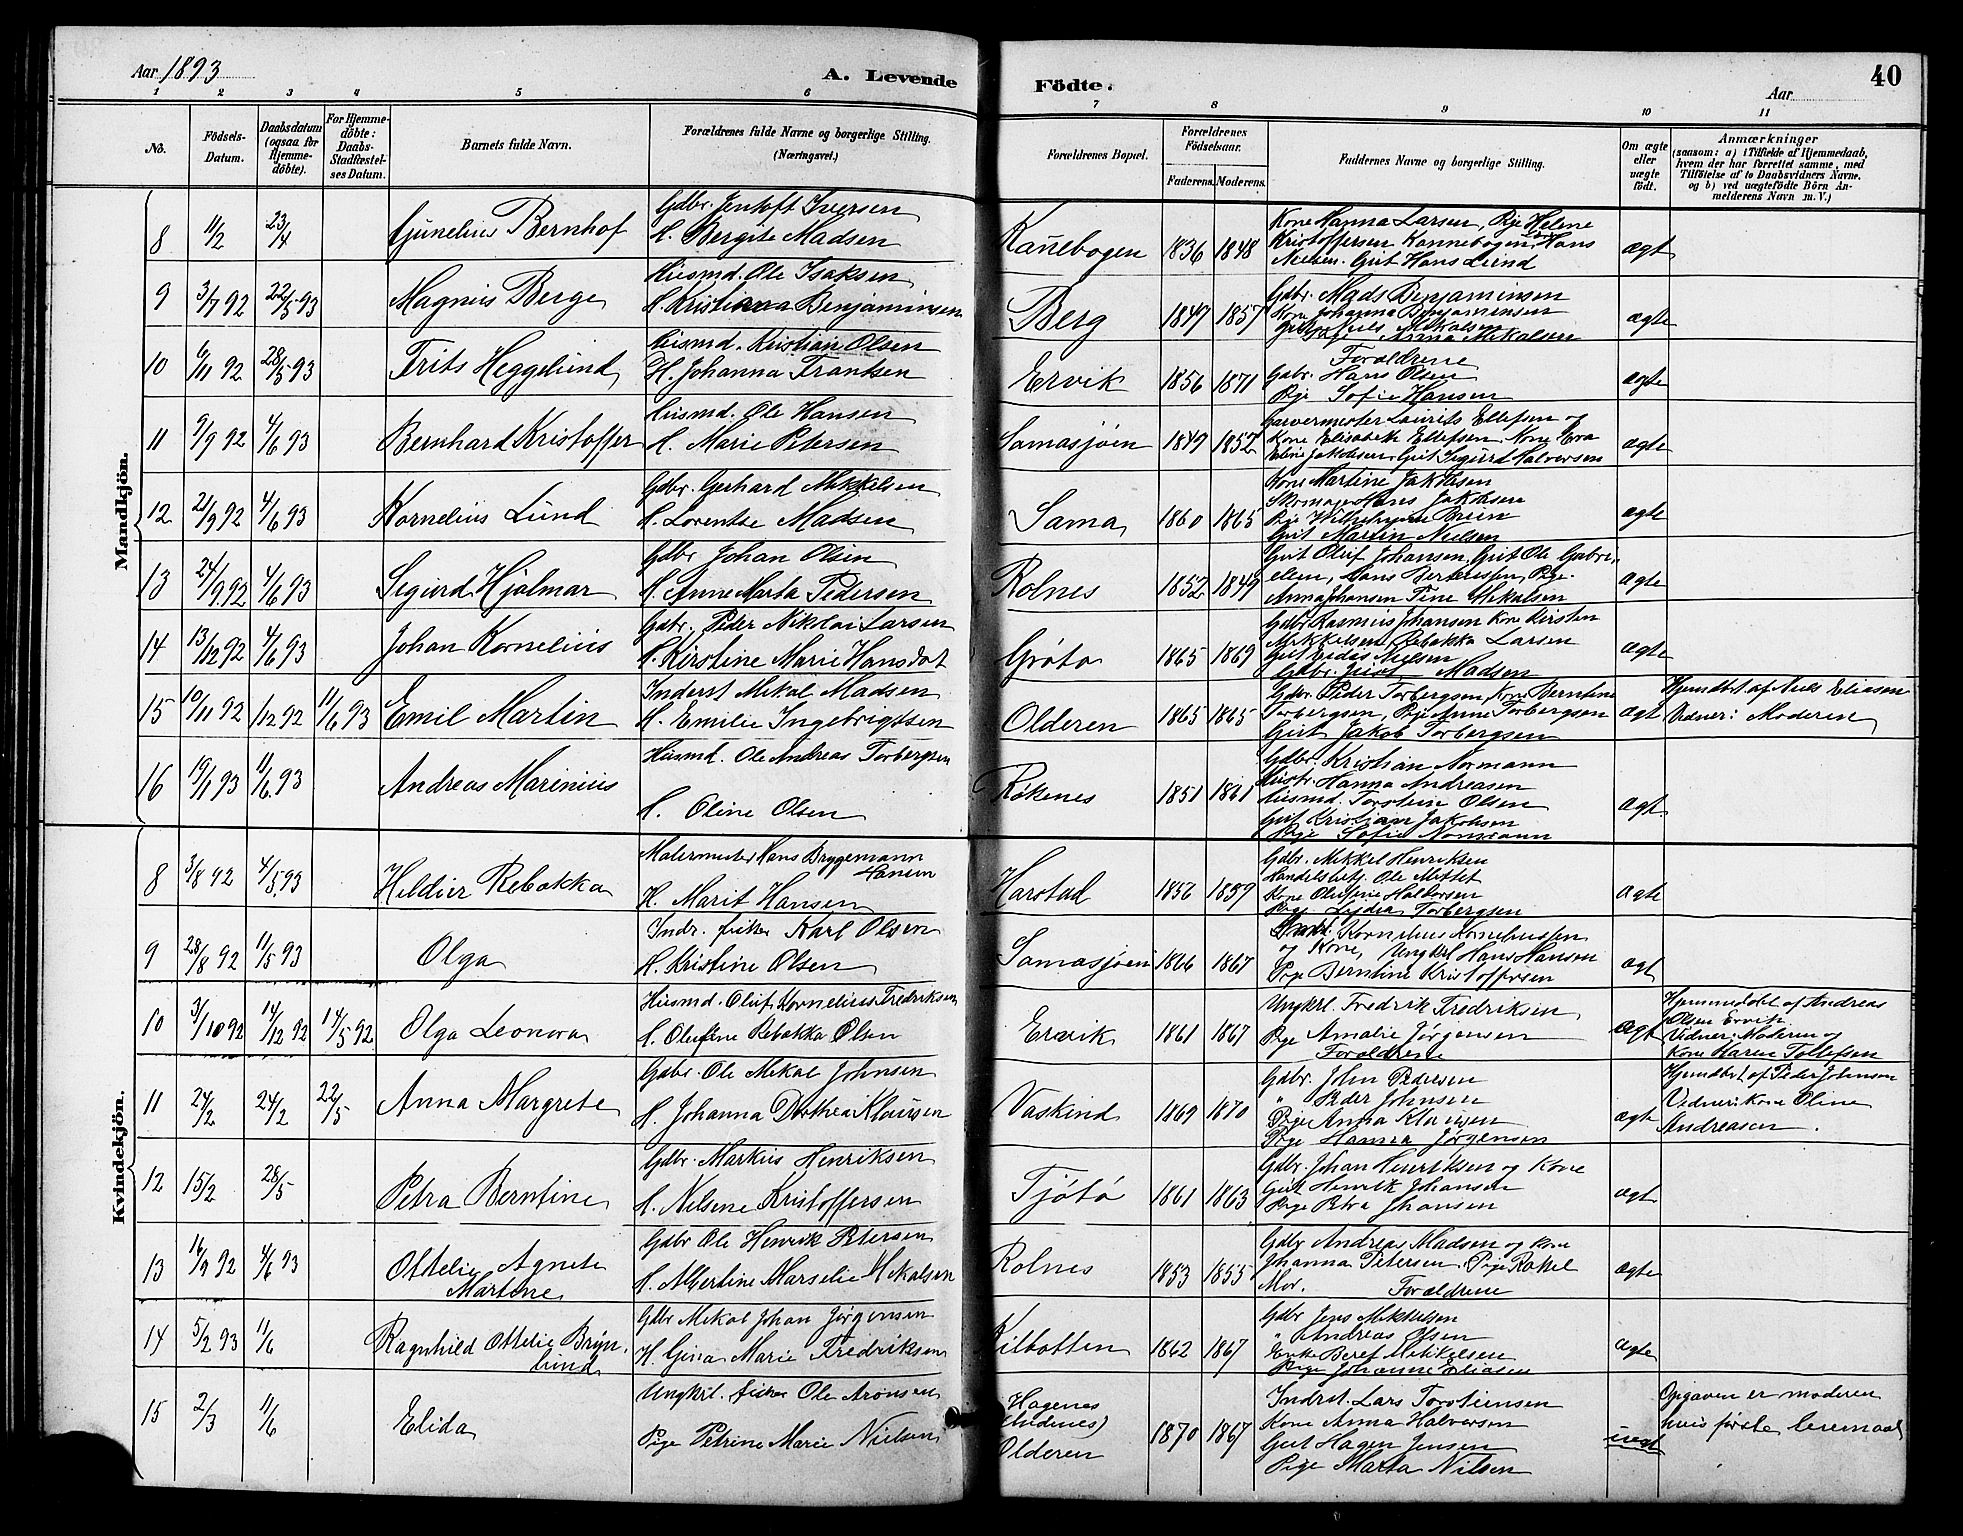 Aar 1893
A. Levende
Födte.
40
Aar
1 2 3 4 5 6 7 8 9 10 11
No.
Födsels-Datum.
Daabsdatum (ogsaa for Hjemme-döbte).
For Hjemme-döbte: Daabs-Stadfæstel-ses Datum.
Barnets fulde Navn.
Forældrenes fulde Navne og borgerlige Stilling.
(Næringsvei.)
Forældrenes Bopæl.
Forældrenes Födselsaar.
Faderens. Moderens.
Faddernes Navne og borgerlige Stilling.
Om ægte eller uægte födt.
Anmærkninger
(saasom: a) i Tilfælde af Hjemmedaab,
hvem der har forrettet samme, med
Tilföielse af to Daabsvidners Navne.
og b) ved uægtefödte Börn An-
melderens Navn m. V.)
Mandkjön.
8 11/2 23/4 Gunelius Bernhof
Gdbr. Jentoft Iversen
H. Bergite Madsen
Kanebogen 1836 1848
Kone Hanna Larsen, Pige Helene
Kristoffersen Kannebogen, Hans
Nielsen. Gut Hans Lund
ægt
9 3/7 92 22/5 93 Magnus Berge
Husmd. Ole Isaksen
H. Kristianna Benjaminsen
Berg 1847 1857
Gdbr. Mads Benjaminsen
Kone Johanna Benjaminsen
Gut Nils Mikalsen
Pige Anna Mikalsen
ægte
10 6/11 92 28/5 93 Frits Heggelund
Husmd. Kristian Olsen
H. Johanna Frantsen
Ervik 1856 1871
Forældrene
Gdbr. Hans Olsen
Pige Sofie Hansen
ægte
11 9/9 92 4/6 93 Bernhard Kristoffer
Husmd. Ole Hansen
H. Marie Petersen
Samasjøen 1849 1852
Garvermester Laurits Ellefsen og
Kone Elisabeth Ellefsen, Kone Eva
Eline Jakobsen, Gut Sigurd Halversen
ægte
12 21/9 92 4/6 93 Kornelius Lund
Gdbr. Gerhard Mikkelsen
H. Lorentse Madsen
Sama 1860 1865
Kone Martine Jakobsen
Skomager Hans Jakobsen
Pige Wilhelmine Bruun
Gut Martin Nielsen
ægte
13 24/9 92 4/6 93 Sigurd Hjalmar
Gdbr Johan Olsen
H. Anne Marta Pedersen
Rolnes 1852 1849
Gut Oluf Johansen, Gut Ole Gabri-
elsen, Hans Berteussen, Pige
Anna Johansen Tine Mikalsen
ægte
14 13/12 92 4/6 93 Johan Kornelius
Gdbr. Peder Nikolai Larsen
H. Kirstine Marie Hansdat
Grøtø 1865 1869
Gdbr Rasmus Johansen Kone Kirsten
Mikkelsen, Rebakka Larsen
Gut Nielsen
Gdbr. Madsen
ægte
15 10/11 92 /12 92 11/6 93 Emil Martin
Inderst Mikal Madsen
H. Emilie Ingebrigtsen
Olderen 1865 1865
Gdbr. Peder Torbergsen, Kone Berntine
Torbergsen, Pige Anne Torbergsen
Gut Jakob Torbergsen
ægt
Hjemdbt af Niels Eliasen
Vidner: Moderen
16 19/1 93 11/6. 93 Andreas Marinius
Husmd. Ole Andreas Torbergsen
H. Oline Olsen
Røkenes 1851 1861
Gdbr. Kristian Normann
Hustr. Hanna Andreasen
Husmd. Torstein Olsen
Gut Kristian Jakobsen
Pige Sofie Normann
ægt
Kvindekjön.
8 3/8 92 4/5 93 Heldier Rebakka
Malermester Hans Bryggemann
Hansen
H. Marit Hansen
Harstad 1852 1859
Gdbr. Mikkel Henriksen
Handelsbetj. Ole Mittet
Kone Olufine Halvorsen
Pige Lydia Torbergsen
ægte
9 28/8 92 11/5 93 Olga
Indr. fisker Karl Olsen
H. Kristine Olsen
Samasjøen 1866 1867
Kornelius Korneliussen
og Kone, Ungkrl Hans Hansen
Pige Berntine Kristoffersen
ægt
10 3/10 92 14/12 92 14/5 92 Olga Leonora
Husmd. Oluf Kornelius Fredriksen
H. Olufine Rebakka Olsen
Ervik 1861 1867
Ungkrl. Fredrik Fredriksen
Pige Amalie Jørgensen
Forældrene
ægt
Hjemmedøbt af Andreas
Olsen Ervik
Vidner: Moderen og
Kone Maren Tollefsen
11 24/2 24/2 22/5 Anna Margrete
Gdbr. Ole Mikal Johnsen
H. Johanna Dorthea Klausen
Vaskind 1869 1870
Gdbr. John Pedersen
" Peder Johnsen
Pige Anna Klausen
Pige Hanna Jørgensen
ægt
Hjemdbt af Peder Johnson
Vidner: Kone Oline
Andreasen.
12 15/2 28/5 Petra Berntine
Gdbr. Markus Henriksen
H. Nilsene Kristoffersen
Tjøtø 1861 1863
Gdbr. Johan Henriksen og Kone
Gut Henrik Johansen
Pige Petra Johansen
ægt
13 16/9 92 4/6 93 Ottelie Agnete
Martine
Gdbr Ole Henrik Petersen
H. Albertine Marselie Mikalsen
Rolnes 1853 1855
Gdbr Andreas Madsen og Kone
Johanna Petersen, Pige Rakel
Mor. Forældrene
ægte
14 5/2 93 11/6 Ragnhild Ottelie Bryn-
lund
Gdbr Mikal Johan Jørgensen
H. Gina Marie Fredriksen
Kilbotten 1862 1867
Gdbr Jens Mikkelsen
" Andreas Olsen
Enke Beret Mikkelsen
Pige Johanne Eliasen
ægte
15 2/3 11/6 Elida
Ungkrl. fisker Ole Aronsen
Pige Petrine Marie Nielsen
Hagenes
Olderen 1870 1867
Indrst. Lars Torstensen
Kone Anna Halversen
Gut Hagen Jensen
Pige Marta Nilsen
uægt
Opgaven er moderen
hvis første leiermaal